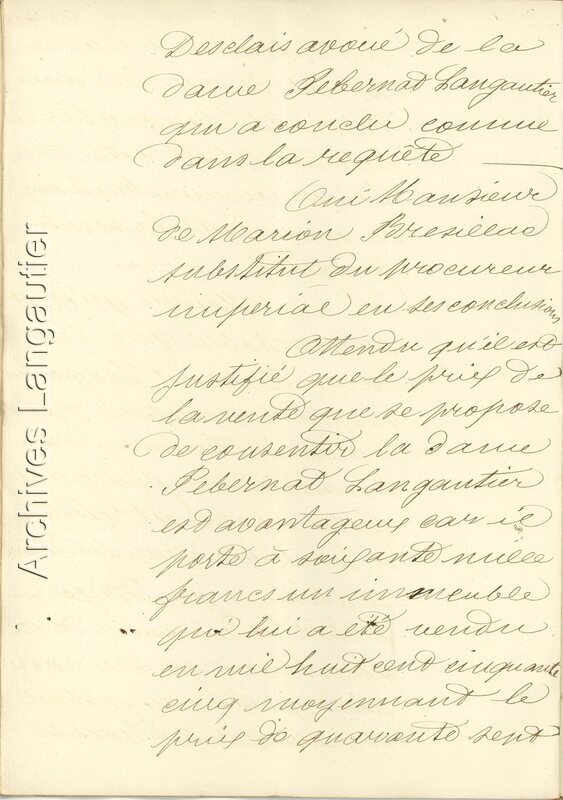 Desclais avoué de la
dame Pebernat Langautier
qui a conclu comme
dans la requête
Oui Monsieur
de Marion Bresillac
substitut du procureur
imperial en ses conclusions
Attendu qu'il est
justifié que le prix de
la vente que se propose
de consentir la dame
Pebernat Langautier
est avantageux car il
porte à soixante mille
francs un immeuble
qui lui a été vendu
en mil huit cent cinquante
cinq moyennant le
prix de quarante sept
Archives Langautier